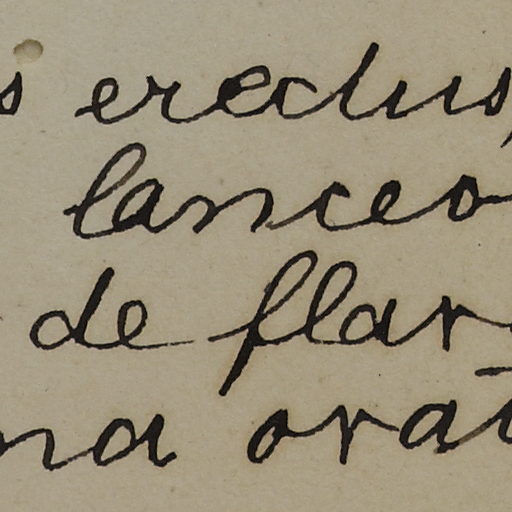 s erectus,
lanceo
de flav
na ovat